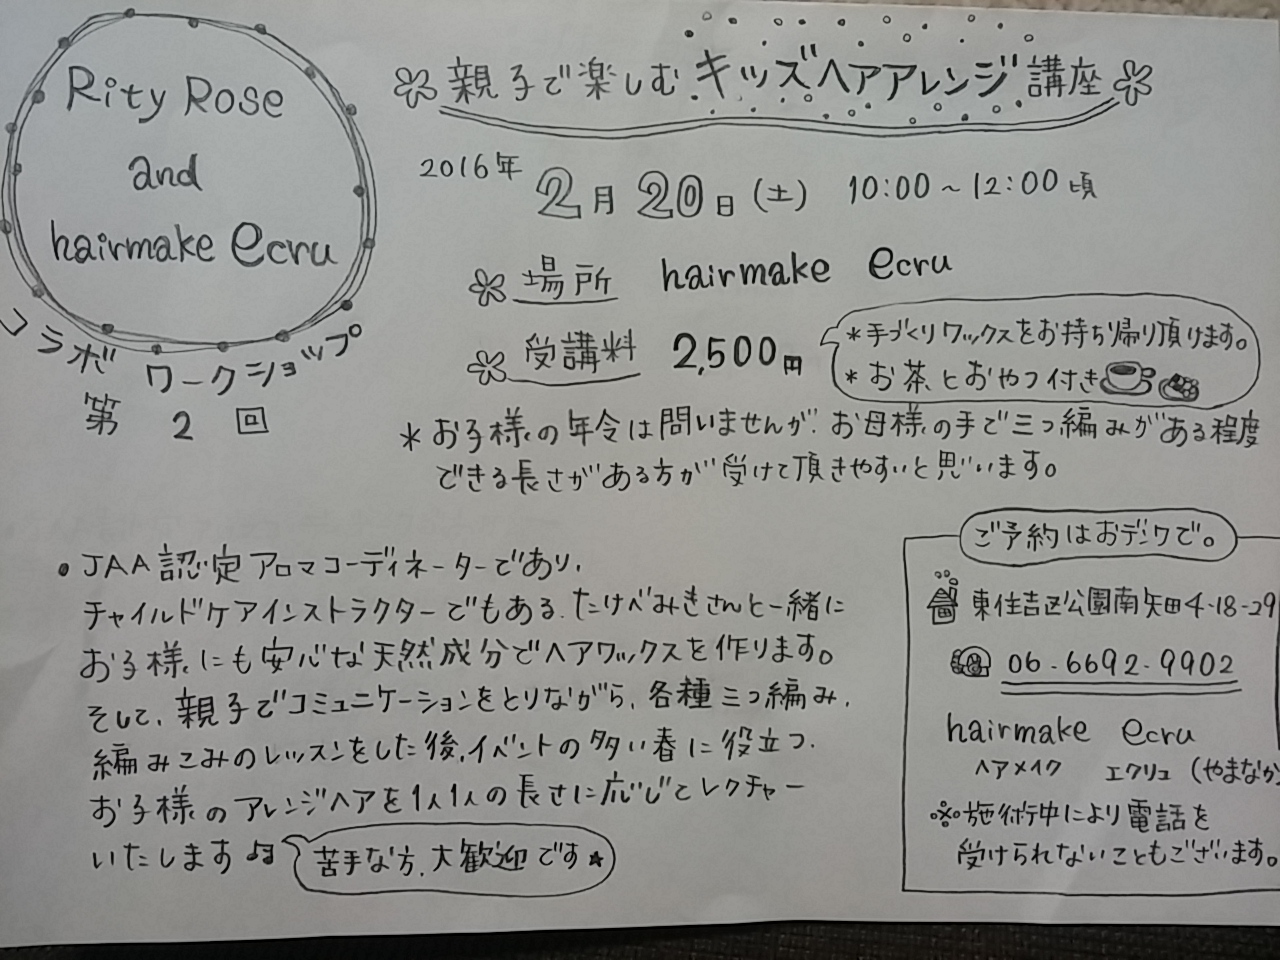 Rity Rose
and
hairmake ecru
コラボ ワークショップ
第2回
親子で楽しむキッズヘアアレンジ講座
2016年 2月20日(土) 10:00~12:00頃
場所 hairmake ecru
受講料 2,500円
*手づくりワックスをお持ち帰り頂けます。
*お茶とおやつ付き
*お子様の年令は問いませんが、お母様の手で三つ編みがある程度
できる長さがある方が受けて頂きやすいと思います。
•JAA認定アロマコーディネーターであり、
チャイルドケアインストラクターでもある、たけべみきさんと一緒に
お子様にも安心な天然成分でヘアワックスを作ります。
そして、親子でコミュニケーションをとりながら、各種三つ編み、
編みこみのレッスンをした後、イベントの多い春に役立つ、
お子様のアレンジヘアを1人1人の長さに応じてレクチャー
いたします♫
苦手な方、大歓迎です★
ご予約はおデンワで。
東住吉区公園南矢田4-18-29
06-6692-9902
hairmake ecru
ヘアメイク エクリュ(やまなか
※施術中により電話を
受けられないこともございます。